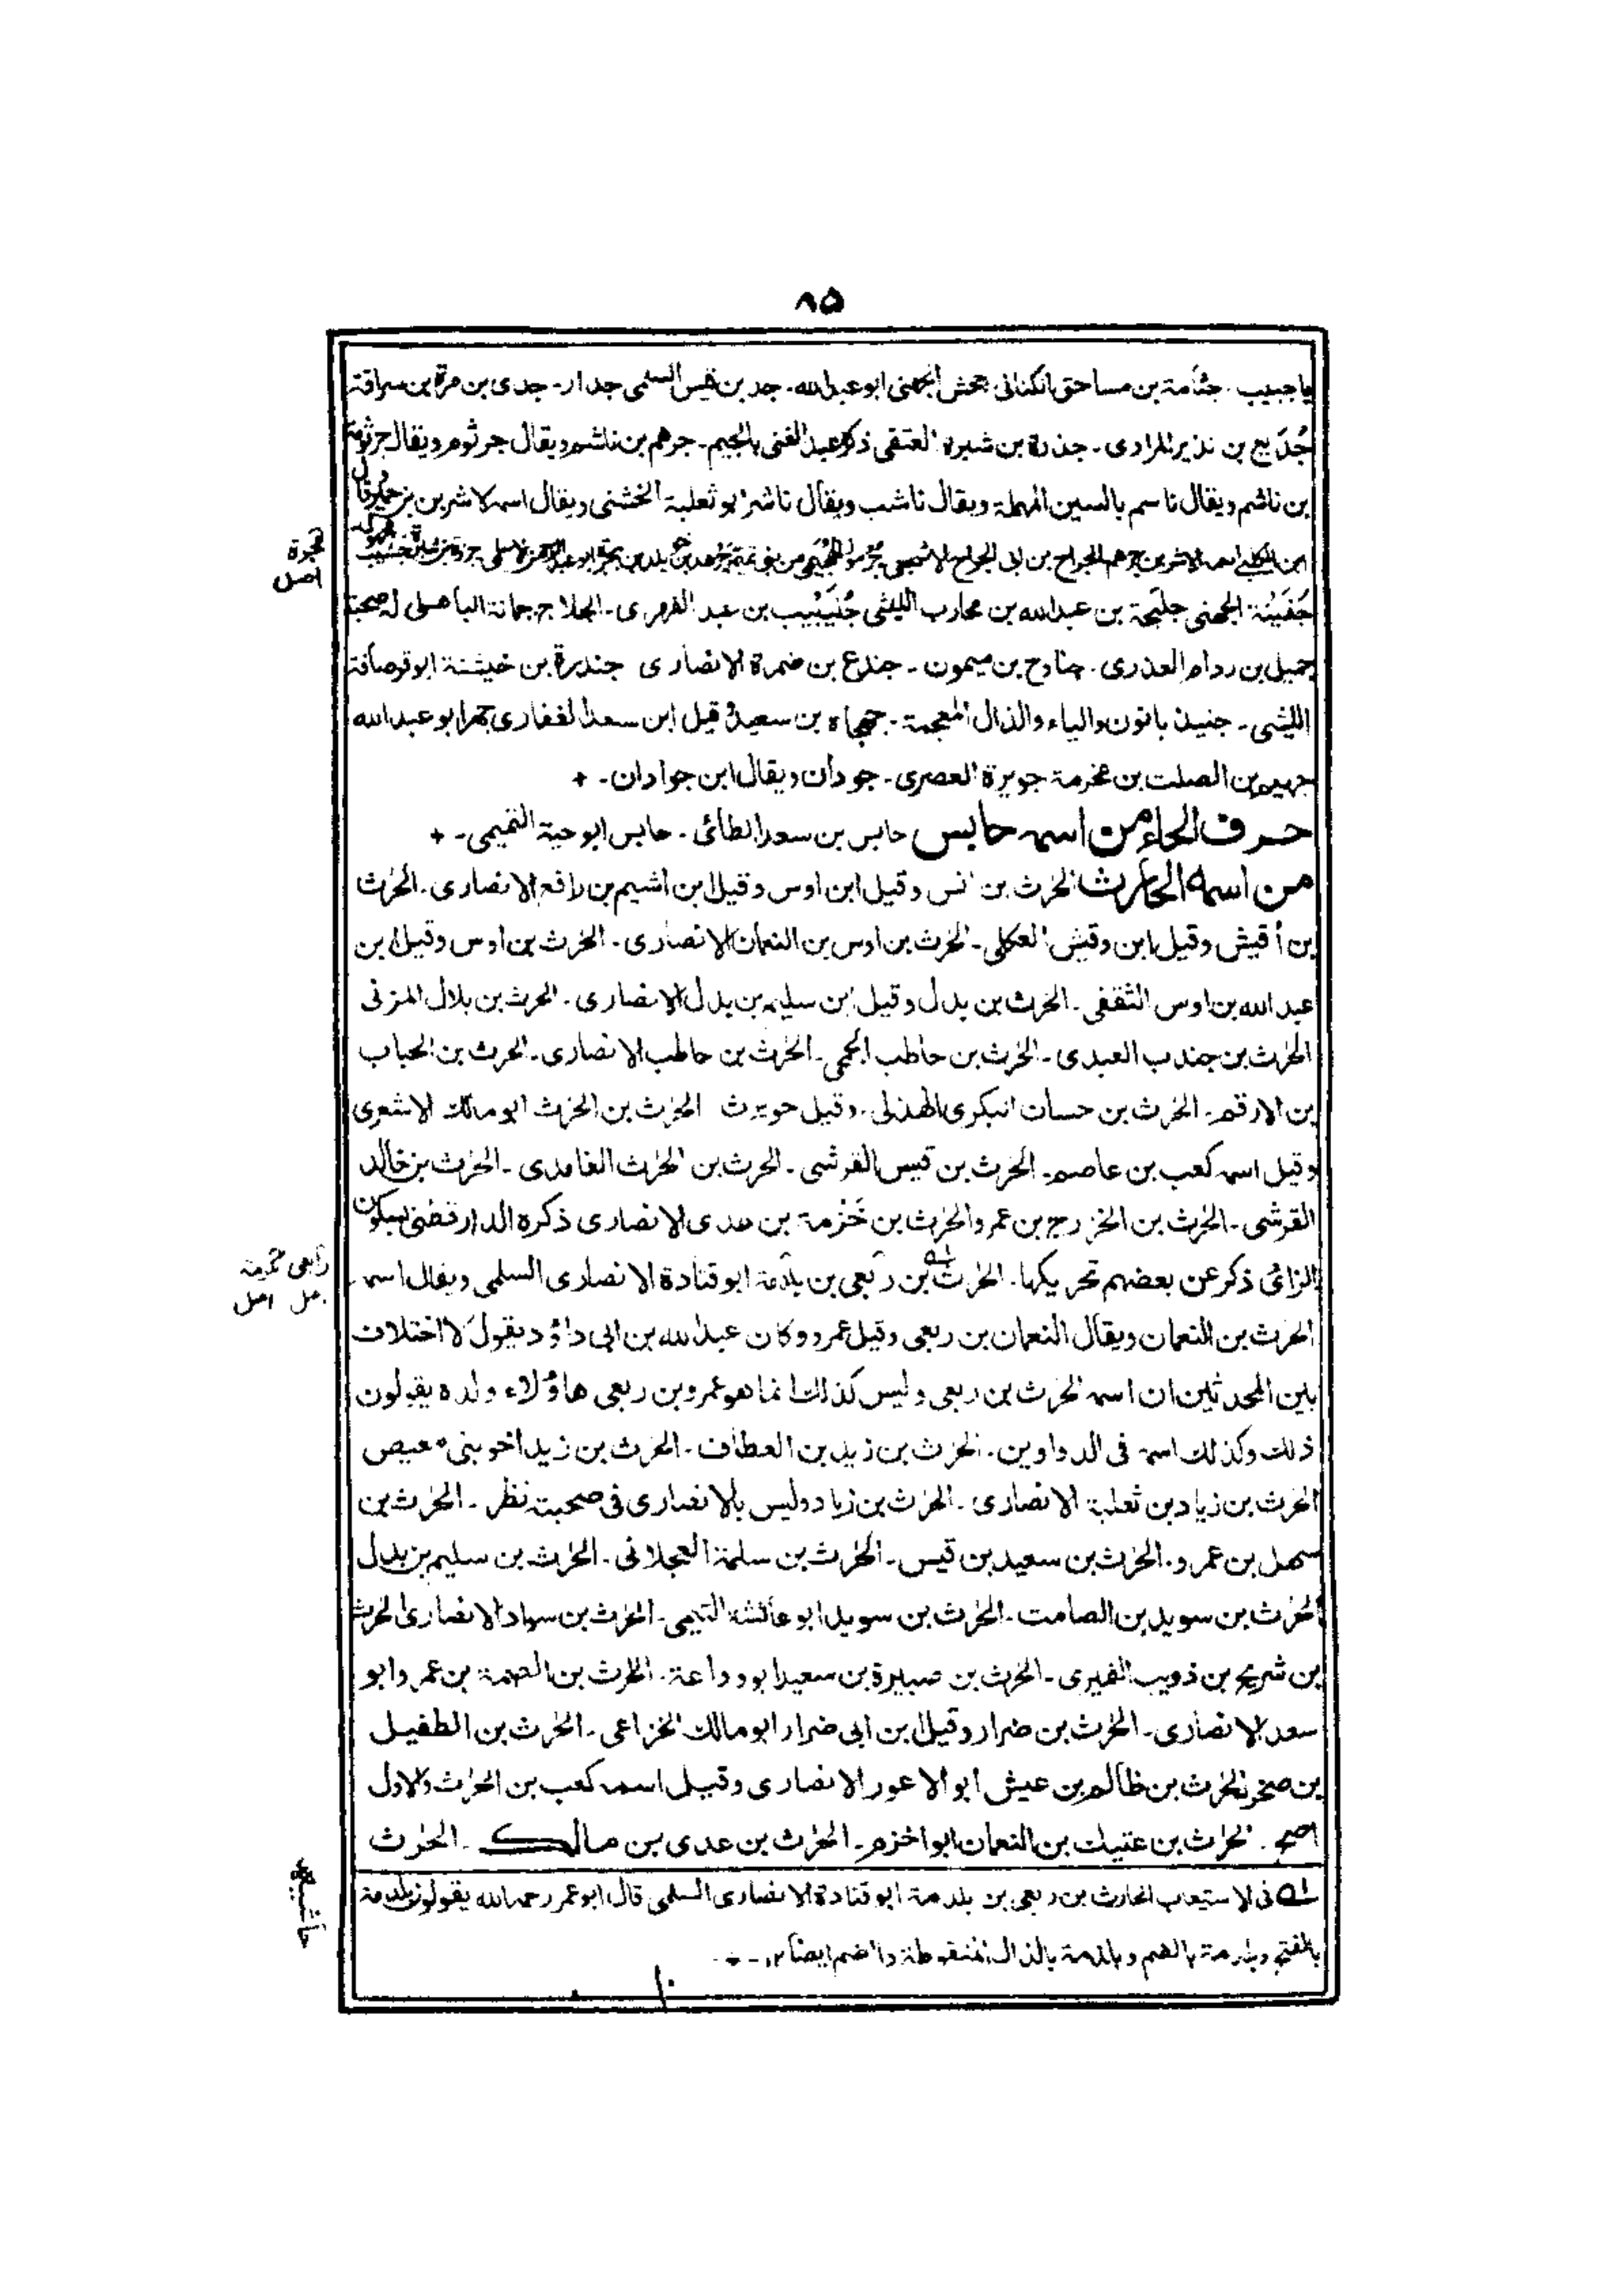 ٨٥
يا جبيب۔ جثامة بن مساحق الكنانى جحش الجهنى ابو عبدالله۔ جد بن قيس السلمى جدار۔ جدى بن مرة بن سراقة
جُدَيع بن نذير المرادى۔ جذرة بن شبرة العتقى ذكره عبد الغنى بالجيم۔ جرهم بن ناشم ويقال جرثوم ويقال جرثومة
بن ناشم ويقال ناسم بالسين المهملة ويقال ناشب ويقال ناشر ابو ثعلبة الخشنى ويقال اسمه لاشر بن
ابن الكلبى اسمه الاشر بن جرهم الجراح بن ابى الجراح الاشجعى جُرموز الهُجَيمى من بنى تميم
جَفَينة الجهنى جليحة بن عبدالله بن محارب الليثى جُلَيبيب بن عبد الفهرى۔ الجلاح جمانة الباهلى له صحبة
جميل بن ردام العذرى۔ جنادح بن ميمون۔ جندع بن ضمرة الانصارى جندرة بن خيشنة ابو قرصافة
الليثى۔ جنيد بالنون والياء والذال المعجمة۔ جهجاه بن سعيد و قيل ابن سعد الغفارى جهر ابو عبدالله
جهيم بن الصلت بن مخرمة جويرة العصرى۔ جودان ويقال ابن جوادان۔ +
حرف الحاء من اسمه حابس حابس بن سعد الطائى۔ حابس ابو حية التميمى۔ +
من اسمه الحارث الحرث بن انس وقيل ابن اوس وقيل ابن اشيم بن رافع الانصارى۔ الحرث
بن أقيش وقيل ابن وقيش العكلى۔ الحرث بن اوس بن النعمان الانصارى۔ الحرث بن اوس وقيل ابن
عبد الله بن اوس الثقفى۔ الحرث بن بدل وقيل ابن سليم بن بدل الانصارى۔ الحرث بن بلال المزنى
الحرث بن جندب العبدى۔ الحرث بن حاطب الجمحى۔ الحرث بن حاطب الانصارى۔ الحرث بن الحباب
بن الارقم۔ الحرث بن حسان البكرى الهذلى۔ وقيل حويرث الحرث بن الحرث ابو مالك الاشعرى
وقيل اسمه كعب بن عاصم۔ الحرث بن قيس القرشى۔ الحرث بن الحرث الغامدى۔ الحرث بن خالد
القرشى۔ الحرث بن الخزرج بن عمر والحرث بن خَزْمة بن عدى الانصارى ذكره الدارقطنى بسكون
الزاى ذكر عن بعضهم تحريكها۔ الحرث بن ربعى بن بلدمة ابو قتادة الانصارى السلمى ويقال اسمه
الحرث بن النعمان ويقال النعمان بن ربعى وقيل عمرو وكان عبد الله بن ابى داؤد يقول لا اختلاف
بين المحدثين ان اسمه الحرث بن ربعى وليس كذلك انما هو عمرو بن ربعى هاؤلاء ولده يقولون
ذلك وكذلك اسمه فى الدواوين۔ الحرث بن زيد بن العطاف۔ الحرث بن زيد اخو بنى معيص
الحرث بن زياد بن ثعلبة الانصارى۔ الحرث بن زياد وليس بالانصارى فى صحبته نظر۔ الحرث بن
سهل بن عمرو۔ الحرث بن سعيد بن قيس۔ الحرث بن سلمة العجلانى۔ الحرث بن سليم بن بدل
الحرث بن سويد بن الصامت۔ الحرث بن سويد ابو عائشة التيمى۔ الحرث بن سهاد الانصارى الحرث
بن شريح بن ذويب النميرى۔ الحرث بن صبيرة بن سعيد ابو وداعة۔ الحرث بن الصمة بن عمر وابو
سعد الانصارى۔ الحرث بن ضرار وقيل ابن ابى ضرار ابو مالك الخزاعى۔ الحرث بن الطفيل
بن صخر الحرث بن ظالم بن عيش ابو الاعور الانصارى وقيل اسمه كعب بن الحرث والاول
اصح۔ الحرث بن عتيك بن النعمان ابو اخزم۔ الحرث بن عدى بن مالك۔ الحرث
له فى الاستيعاب الحارث بن ربعى بن بلدمة ابو قتادة الانصارى السلمى قال ابو عمر رحمه الله يقولون بلدمة
بالفتح وبلدمة بالضم وبلذمة بالذال المنقوطة والضم ايضا ١٢۔ +
هجرة
اصل
اصل
حاشيه